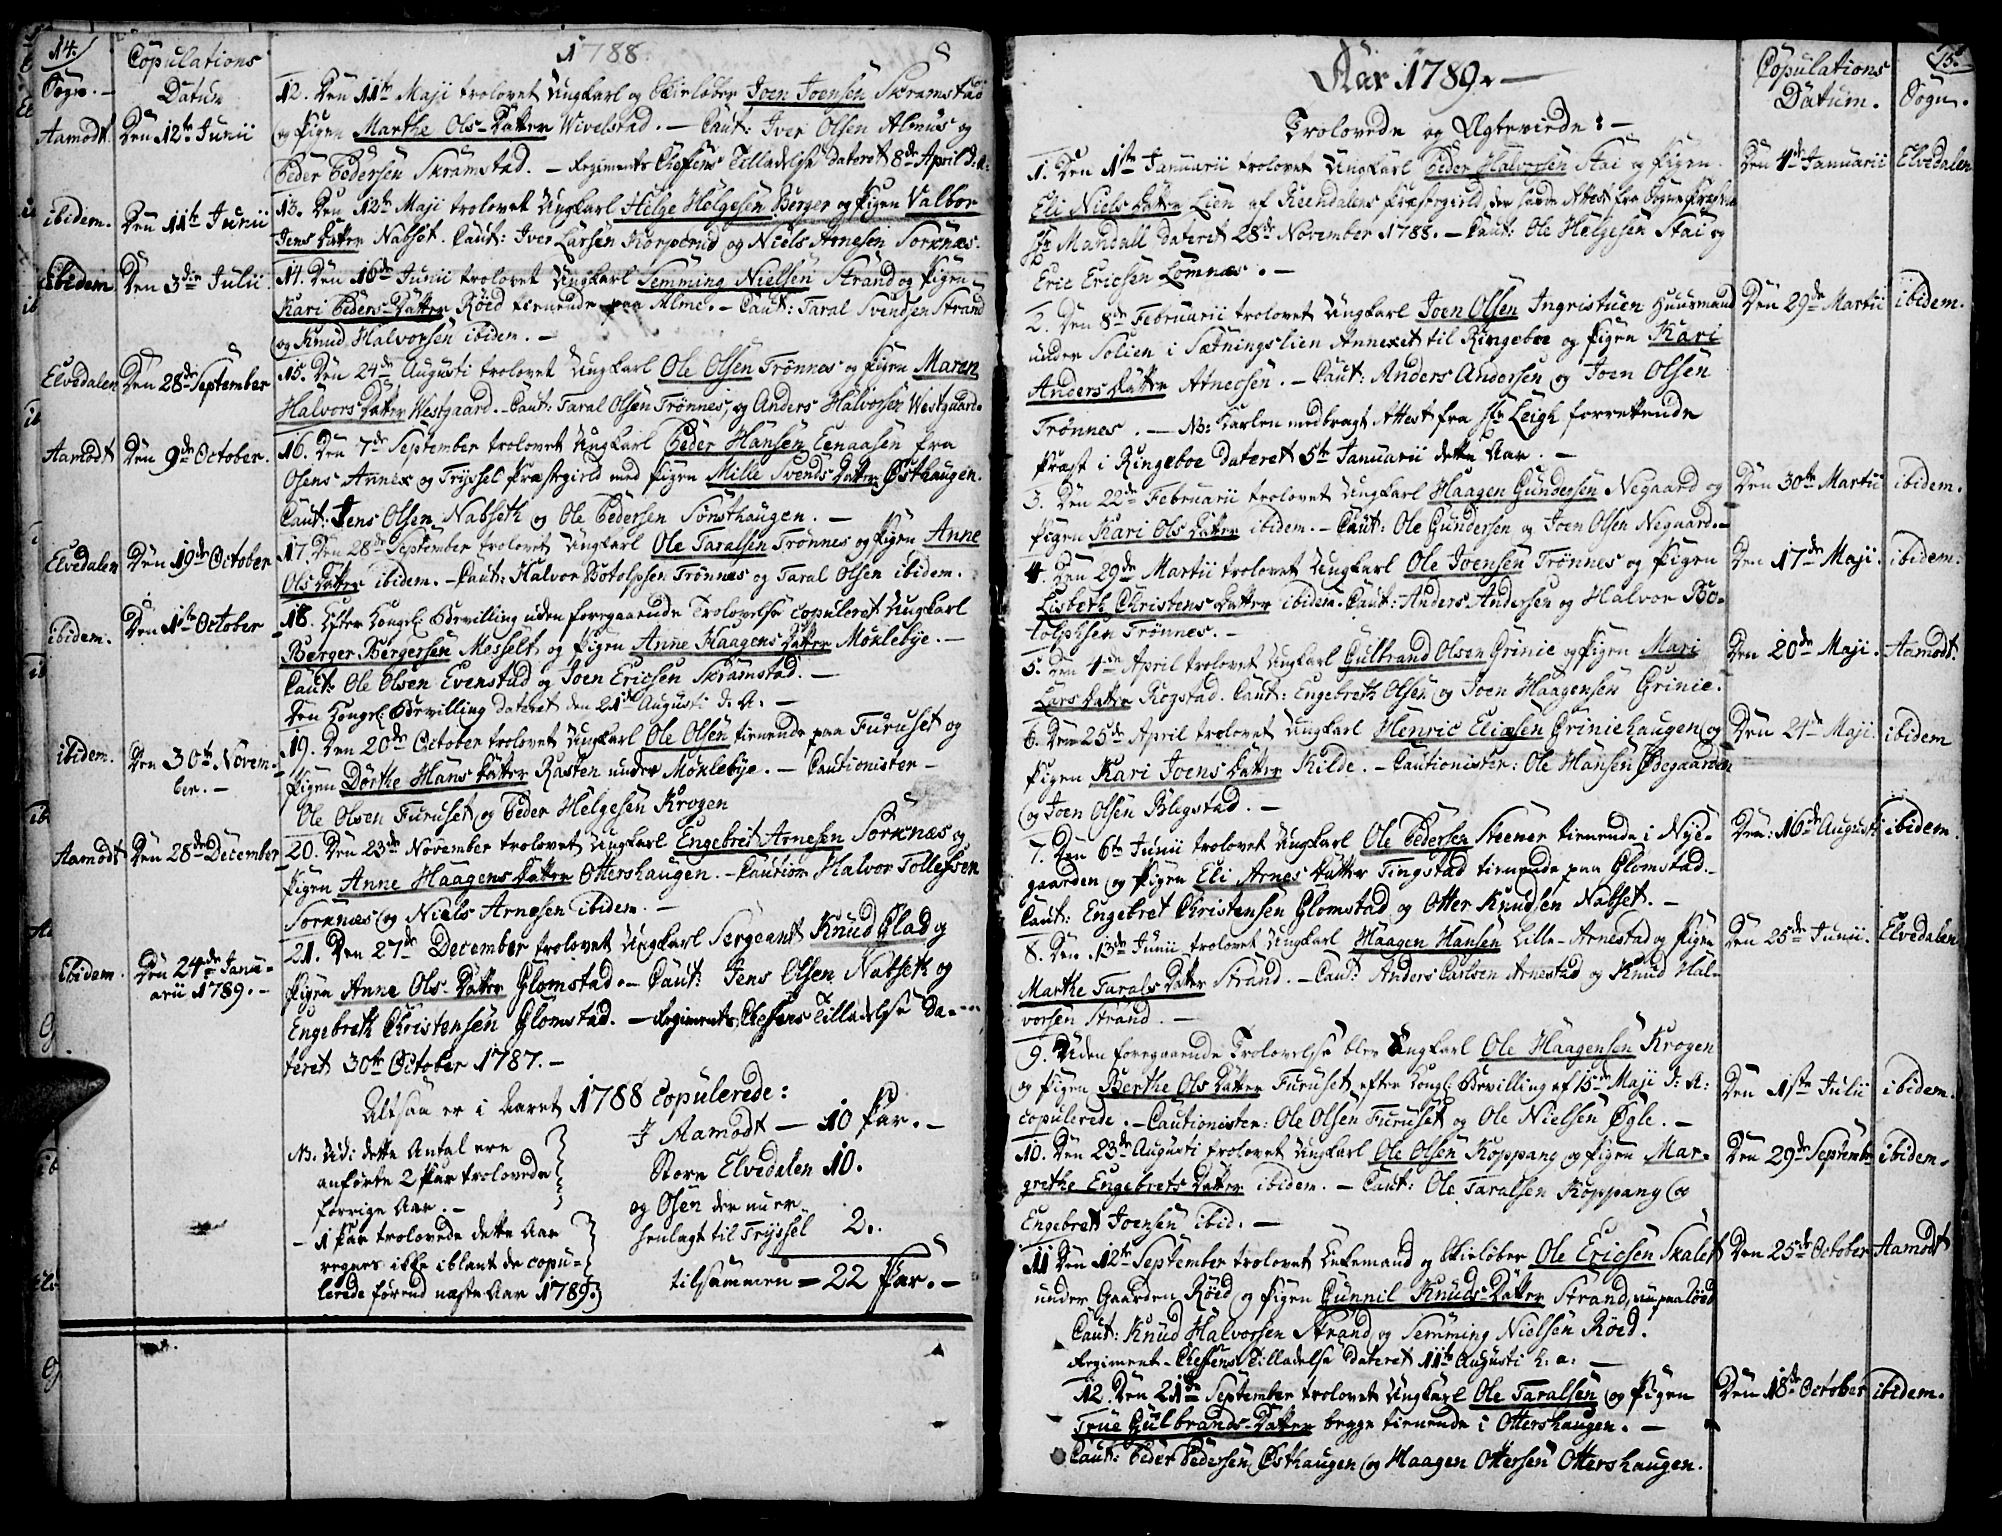 14.
Sogn. -
Copulations
Datum
1788
Aamodt
Den 12te Junii
12. Den 11te Maji trolovet Ungkarl og Skieløber Joen Joensen Skramstad
og Pigen Marthe Ols-Datter Wivelstad. - Caut: Iver Olsen Almus og
Peder Pedersen Skramstad. - Regiments Cheffens Tilladelse dateret 8de April d. A.
ibidem.
Den 11te Junii
13. Den 12te Maji trolovet Ungkarl Hilge Helgesen Berger og Pigen Valbor
Jens Datter Nabset. Caut: Iver Larsen Korperud og Niels Arnesen Sorknæs.
ibidem
Den 3die Julii
14. Den 16de Junii trolovet Ungkarl Semming Nielsen Strand og Pigen
Kari Peders-Datter Röed tienende paa Alme. - Caut: Taral Svendsen Strand
og Knud Halvorsen ibidem. -
Elvedalen
Den 28de September
15. Den 24de Augusti trolovet Ungkarl Ole Olsen Trönnes og Pigen Maren
Halvors Datter Westgaard. - Caut: Taral Olsen Trönnes, og Anders Halvorsen Westgaard.
Aamodt
Den 9de October.
16. Den 7de September trolovet Ungkarl Peder Hansen Eenaasen fra
Osens Annex og Tryssel Præstegield med Pigen Mille Svends Datter Østhaugen.
Caut: Jens Olsen Nabseth og Ole Pedersen Sönsthaugen. -
Elvedalen
Den 19de October
17. Den 28de September trolovet Ungkarl Ole Taralsen Trönnes og Pigen Anne
Ols Datter ibidem. - Caut: Halvor Botolphsen Trönnes og Taral Olsen ibidem.
ibidem.
Den 1ste October
18. Efter Kongel: Bevilling uden foregaaende Trolovelse copuleret Ungkarl
Berger Bergersen Messelt og Pigen Anne Haagens Datter Möklebye. -
Caut: Ole Olsen Evenstad og Joen Ericsen Skramstad. -
Den Kongel: Bevilling dateret den 21de Augusti d: A: -
ibidem.
Den 30te Novem-
ber. -
19. Den 20de October trolovet Ungkarl Ole Olsen tienende paa Furuset og
Pigen Dorthe Hans Datter Rasten under Möklebye. - Cautionister -
Ole Olsen Furuset og Peder Helgesen Krogen
Aamodt
Den 28de December
20. Den 23de November trolovet Ungkarl Engebret Arnesen Sorknæs og
Pigen Anne Haagens Datter Ottershaugen. - Caution Halvor Tollefsen
Sorknæs og Niels Arnesen ibidem. -
ibidem.
Den 24de Janu-
arii 1789. -
21. Den 27de December trolovet Ungkarl Sergeant Knud Glad og
Pigen Anne Ols-Datter Glomstad. - Caut: Jens Olsen Nabseth og
Engebreth Christensen Glomstad. - Regiments Cheffens Tilladelse da-
teret 30te October 1787. -
Altsaa er i Aaret 1788 copulerede:
I Aamodt - 10 Par. -
Store Elvedalen 10.
og Osen der nu er
henlagt til Tryssel 2.
tilsammen = 22 Par. -
NB. Udi dette Antal ere
anförte 2 Par trolovede
forrige Aar. -
- 1 Par trolovede dette Aar
regnes ikke iblant de copu-
lerede förend næste Aar 1789.
15.
Aar 1789. -
Copulations
Datum.
Sogn.
Trolovede og Egteviede: -
1. Den 1ste Januarii trolovet Ungkarl Peder Halvorsen Stai og Pigen
Eli Niels Datter Lien af Rendalens Præstegield, der havde Attest fra Sogne Præsten
Hr Mandall dateret 28de November 1788. - Caut: Ole Helgesen Stai og
Eric Ericsen Lömnæs. -
Den 4de Januarii
Elvedalen
2. Den 8de Februarii trolovet Ungkarl Joen Olsen Ingristuen Huusmand
under Solien i Sætningslien Annexet til Ringeboe og Pigen Kari
Anders Datter Atneosen. - Caut: Anders Andersen og Joen Olsen
Trönnes. - NB: Karlen medbragt Attest fra Hr Leigh forrettende
Præst i Ringeboe dateret 5te Januarii dette Aar. -
Den 29de Martii
ibidem.
3. Den 22de Februarii trolovet Ungkarl Haagen Gundersen Negaard og
Pigen Kari Ols Datter ibidem. - Caut: Ole Gundersen og Joen Olsen Negaard. -
Den 30te Martii
ibidem.
4. Den 29de Martii trolovet Ungkarl Ole Joensen Trönnes og Pigen
Lisbeth Christens Datter ibidem. Caut: Anders Andersen og Halvor Bo-
tolphsen Trönnes. -
Den 17de Maji.
ibidem.
5. Den 4de April trolovet Ungkarl Gulbrand Olsen Grinie og Pigen Mari
Lars Datter Rogstad. Caut: Engebreth Olsen og Joen Haagensen Grinie.
Den 20de Maji.
Aamodt.
6. Den 25de April trolovet Ungkarl Henric Eliasen Griniehaugen og
Pigen Kari Joens Datter Kilde. - Cautionister: Ole Hansen Øvegaarden
og Joen Olsen Blegstad. -
Den 21de Maji
ibidem
7. Den 6te Junii trolovet Ungkarl Ole Pedersen Steener tienende i Nye-
gaarden og Pigen Eli Arnes Datter Tingstad tienende paa Glomstad. -
Caut: Engebret Christensen Glomstad og Otter Knudsen Nabset. -
Den: 16de Augusti
ibidem
8. Den 13de Junii trolovet Ungkarl Haagen Hansen Lille-Arnestad og Pigen
Marthe Tarals Datter Strand. - Caut: Anders Carlsen Arnestad og Knud Hal-
vorsen Strand. -
Den 25de Junii.
Elvedalen
9. Uden foregaaende Trolovelse blev Ungkarl Ole Haagensen Krogen
og Pigen Berthe Ols Datter Furuset, efter Kongl: Bevilling af 15de Maji d: A:
copulerede. - Cautionister: Ole Olsen Furuset og Ole Nielsen Øgle. -
Den 1ste Julii
ibidem.
10. Den 23de Augusti trolovet Ungkarl Ole Olsen Koppang og Pigen Mar-
grethe Engebrets Datter ibidem. - Caut: Ole Taralsen Koppang og
Engebrett Joensen ibid: -
Den 29de September
ibidem.
11 Den 12te September trolovet Enkemand og Skieløber Ole Ericsen Skalet
under Gaarden Röed og Pigen Gunnil Knuds-Datter Strand,
Caut: Knud Halvorsen Strand og Semming Nielsen Röed.
Regiment-Cheffens Tilladelse dateret 11te Augusti h: a: -
Den 25de October
Aamodt
12. Den 21de September trolovet Ungkarl Ole Taralsen og Pigen
True Gulbrands-Datter begge tienende i Ottershaugen. -
Caut: Peder Pedersen Østhaugen og Haagen Ottersen Ottershaugen.
Den 18de October
ibidem.